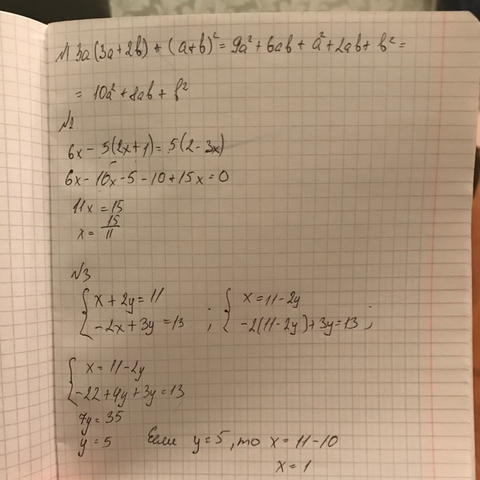 №1 3a(3a+2b) + (a+b)² = 9a²+6ab+a²+2ab+b² =
= 10a²+8ab+b²
№2
6x - 5(2x+1) = 5(2-3x)
6x-10x-5-10+15x=0
11x=15
x = 15/11
№3
{ x+2y=11 ; { x=11-2y
{ -2x+3y=13 ; { -2(11-2y)+3y=13 ;
{ x=11-2y
{ -22+4y+3y=13
7y=35
y=5 Если y=5, то x=11-10
x=1